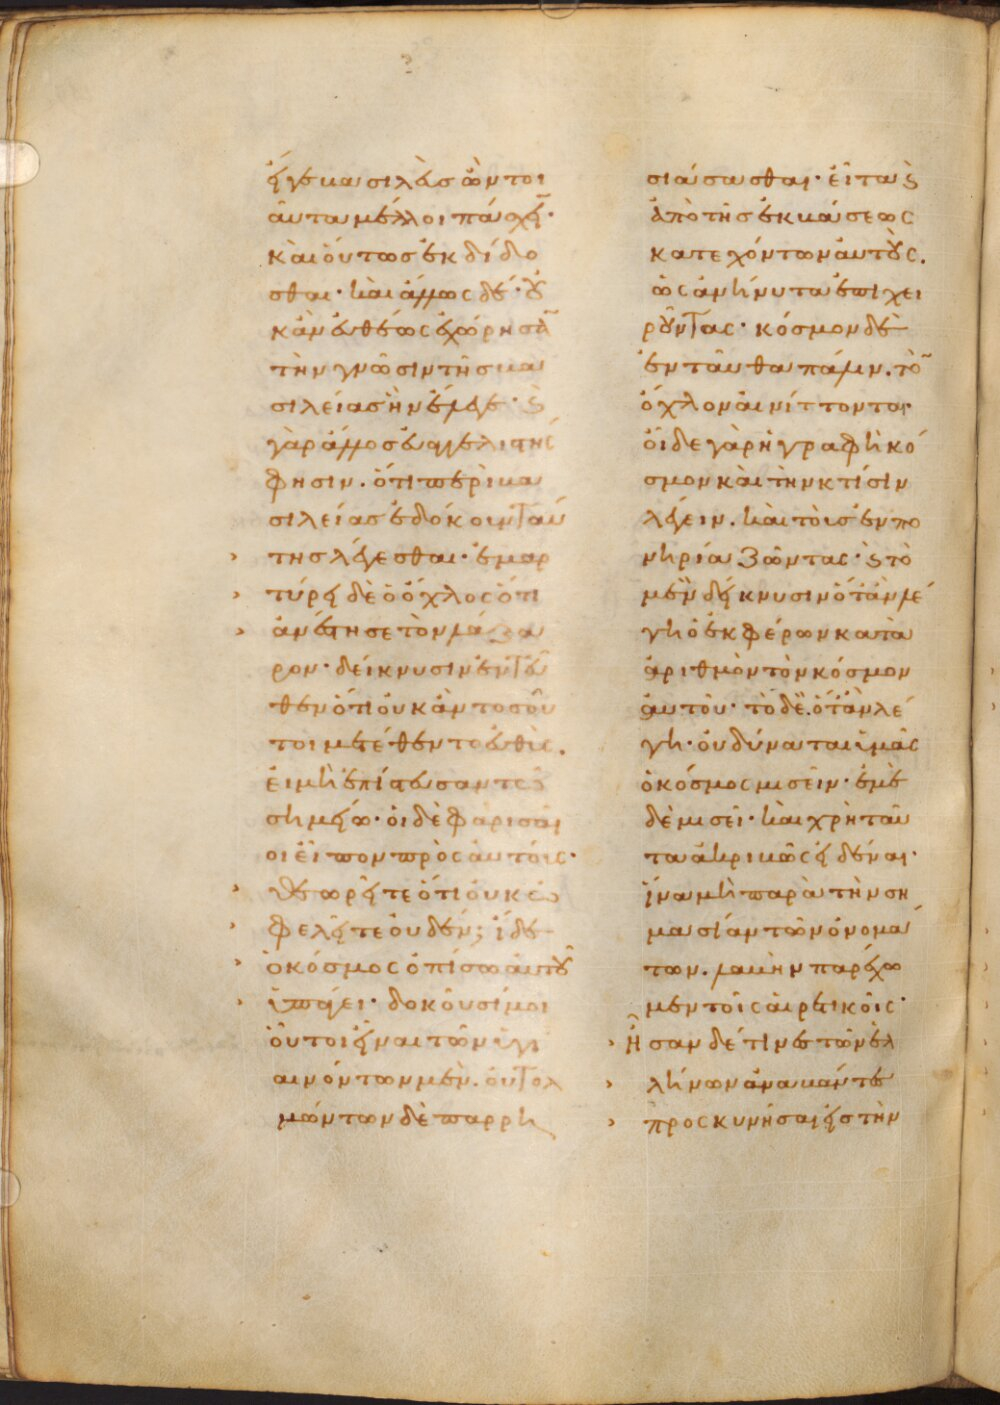 εἴγε βασιλεὺς ὢν τοι
αῦτα μέλλοι πάσχειν·
καὶ οὕτως ἐκδίδο
σθαι· καὶ ἄλλως δέ· οὐ
κἂν εὐθέως ἐχώρησαν
τὴν γνῶσιν τῆς βα
σιλείας ἣν ἔλεγε· ὁ
γὰρ ἄλλος εὐαγγελιστής
φησιν. ὅτι περὶ βα
σιλείας ἐδόκουν ταύ
της λέγεσθαι· ἐμαρ
τύρει δὲ ὁ ὄχλος ὅτι
ἀνέστησε τὸν λάζα
ρον· δείκνυσιν ἐντεῦ
θεν ὅτι οὐκ ἂν τοσοῦ
τοι μετέθεντο εὐθύς.
εἰ μὴ ἐπίστευσαν τῷ
σημείῳ· οἱ δὲ φαρισαῖ
οι εἶπον πρὸς αὐτούς·
θεωρεῖτε ὅτι οὐκ ὠ
φελεῖτε οὐδέν; ἴδε
ὁ κόσμος ὀπίσω αὐτοῦ
ὑπάγει· δοκοῦσί μοι
οὗτοι εἶναι τῶν ὑγι
αινόντων μὲν. οὐ τολ
μώντων δὲ παρρη
σιάσασθαι· εἶτα καὶ
ἀπὸ τῆς ἐκβάσεως
κατεχόντων αὐτοὺς.
ὡς ἀνήνυτα ἐπιχει
ροῦντας· κόσμον δὲ
ἐνταῦθα πάλιν. τὸν
ὄχλον αἰνίττονται·
οἶδε γὰρ ἡ γραφὴ κό
σμον καὶ τὴν κτίσιν
λέγειν. καὶ τοὺς ἐν πο
νηρία ζῶντας· καὶ τὸ
μὲν δείκνυσιν ὅταν λέ
γη ὁ ἐκφέρων κατὰ
ἀριθμὸν τὸν κόσμον
αὐτοῦ· τὸ δὲ. ὅταν λέ
γη· οὐ δύναται ὑμᾶς
ὁ κόσμος μισεῖν· ἐμὲ
δὲ μισεῖ· καὶ χρὴ ταῦ
τα ἀκριβῶς εἰδέναι·
ἵνα μὴ παρὰ τὴν ση
μασίαν τῶν ὀνομά
των. λαβὴν παρέχω
μεν τοῖς αἱρετικοῖς·
Ἦσαν δέ τινες τῶν ἑλ
λήνων ἀναβάντες
προσκυνῆσαι εἰς τὴν